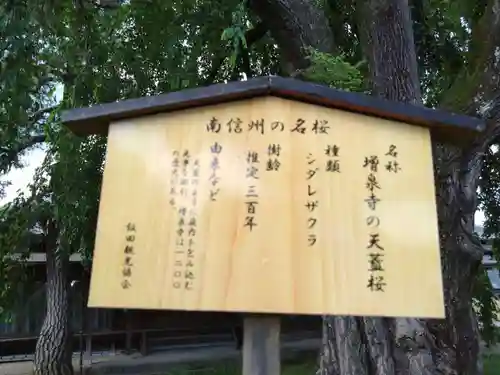 南信州の名桜
名称
増泉寺の天蓋桜
種類
シダレザクラ
樹齢
推定三百年
由来など
飯田観光協会